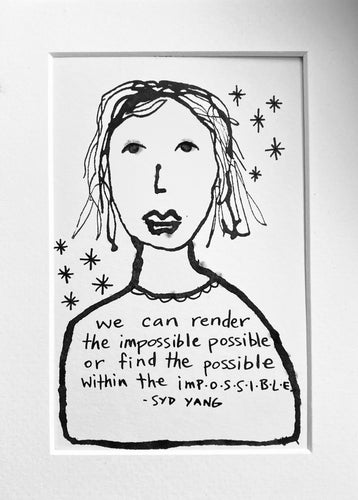 we can render
the impossible possible
or find the possible
within the imP.O.S.S.I.B.L.E.
- SYD YANG